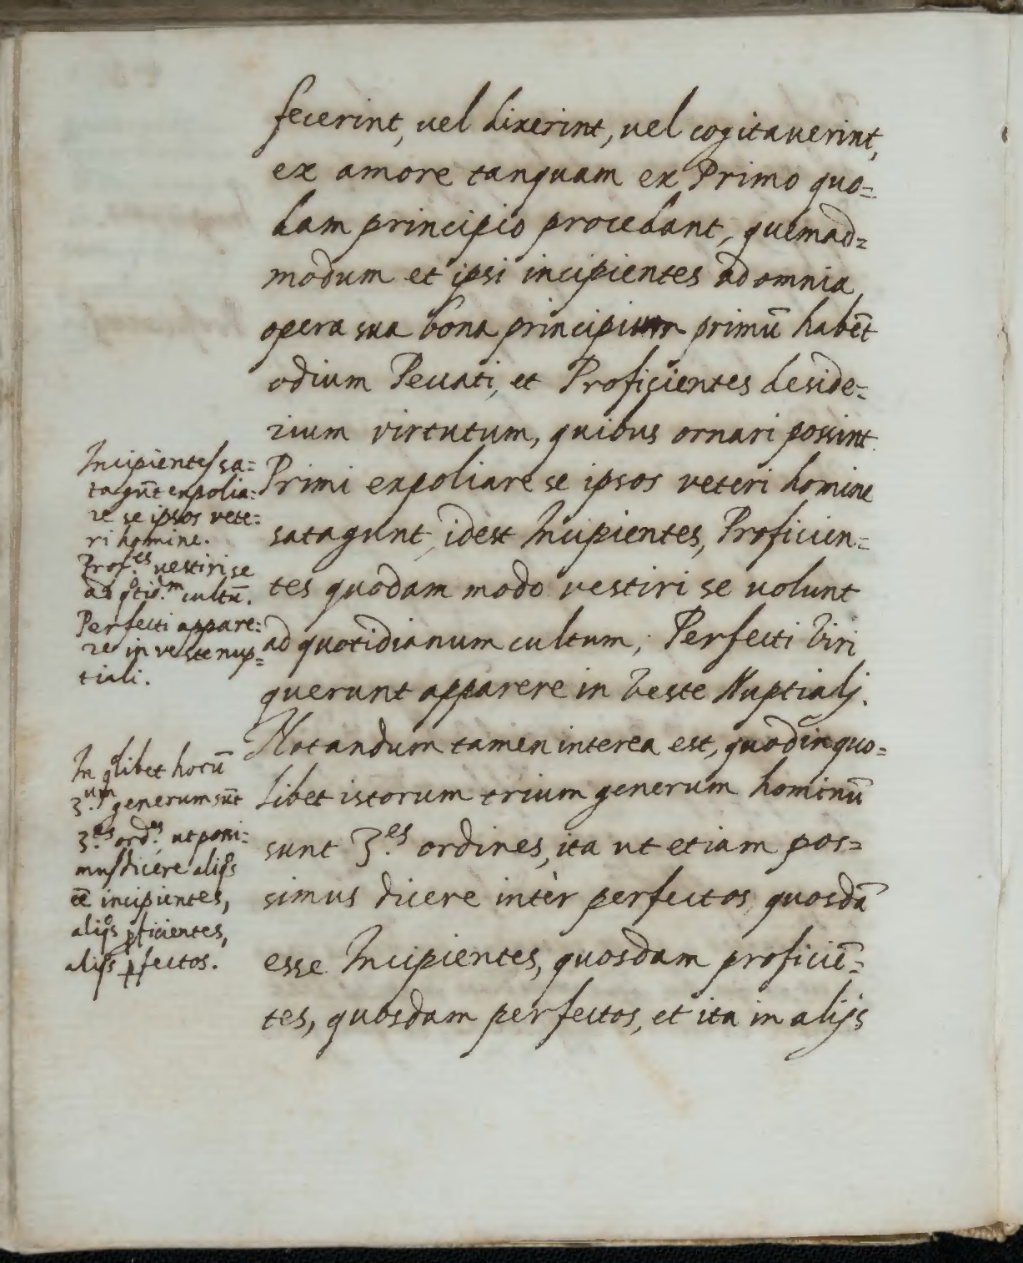 fecerint, uel dixerint, uel cogitauerint,
ex amore tanquam ex Primo quo=
dam principio procedant, quemad=
modum et ipsi incipientes ad omnia
opera sua bona principium primū habēt
odium Peccati, et Proficientes deside=
rium virtutum, quibus ornari possint.
Primi expoliare se ipsos veteri homine
satagunt, idest Incipientes, Proficien=
tes quodam modo vestiri se uolunt
ad quotidianum cultum; Perfecti Viri
querunt apparere in Veste Nuptialj.
Notandum tamen interea est, quod in quo=
libet istorum trium generum hominū
sunt 3.es ordines, ita ut etiam pos=
simus dicere intèr perfectos, quosdā
esse Incipientes, quosdam proficiē=
tes, quosdam perfectos, et ita in alijs
Incipientes sa=
tagūt expolia=
re se ipsos vete=
ri homine.
Prof.es vestiri se
ad qtid.m cultū.
Perfecti appare=
re in veste nup=
tiali.
In qlibet horū
3.um generum sūt
3.es ord.es, ut possi=
mus dicere aliqs
eē incipientes,
aliqs pficientes,
aliqs pfectos.